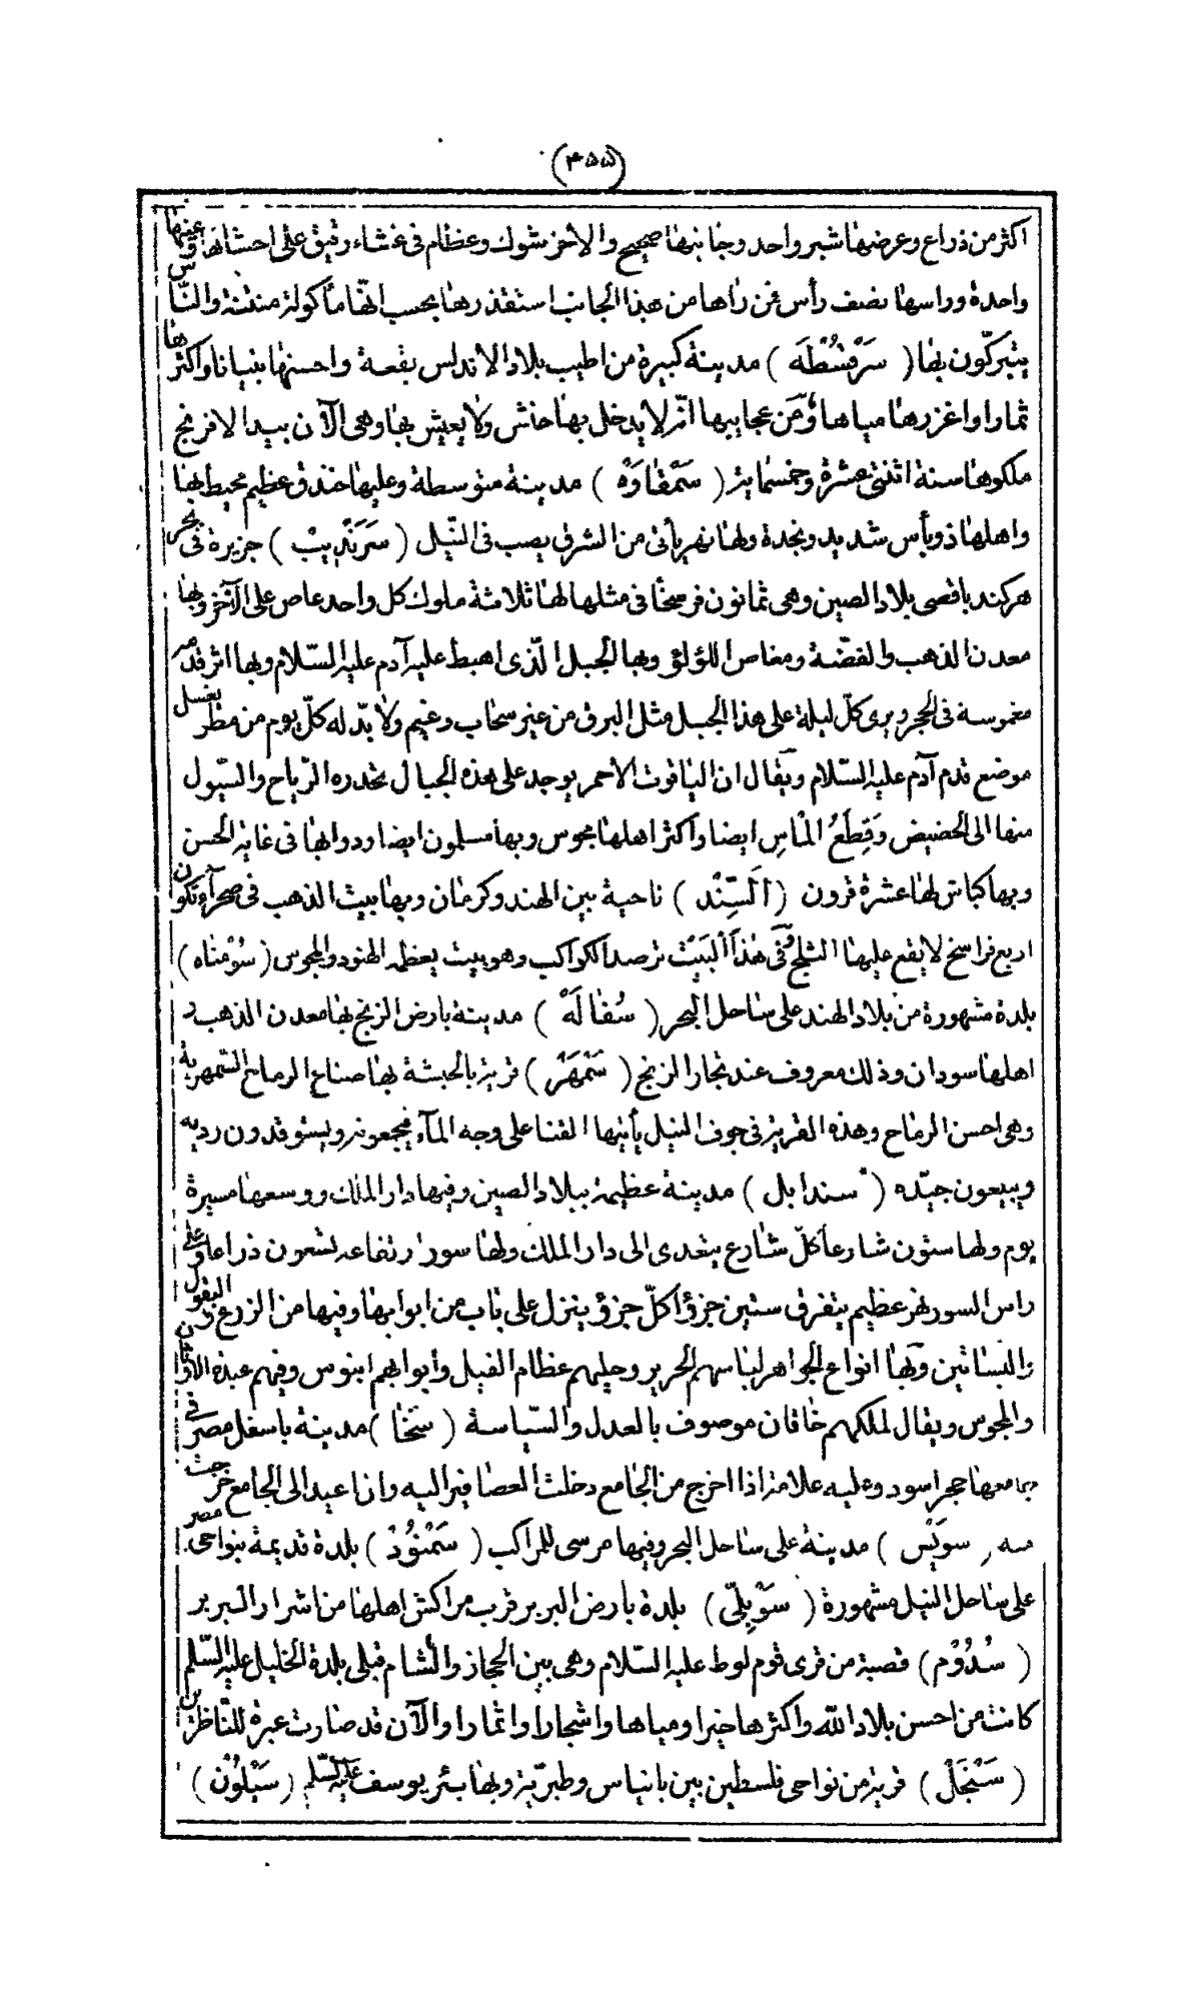 (٤٥٥)
اكثر من ذراع وعرضها شبر واحد وجانبها صحيح والاخر شوك وعظام فى غشاء رقيق على احشائها وعينها
واحدة وراسها نصف رأس فمن رأها من هذا الجانب استقذرها يحسب انّها مأكولة منتنة والنّاس
يتبرّكون بها ( سَرْقُسْطَه ) مدينة كبيرة من اطيب بلاد الاندلس بقعة واحسنها بنيانا واكثرها
ثمارا واغزرها مياها وَمِن عجايبها انّه لا يدخل بها حانش ولا يعيش بها وهى الآن بيد الافرنج
ملكوها سنة اثنتى عشرة وخمسماية ( سَمْقاوَهْ ) مدينة متوسطة وعليها خندق عظيم محيط بها
واهلها ذو بأس شديد ونجدة ولها نهر يأتى من الشرق يصب فى النّيل ( سَرَنْدِيبْ ) جزيرة فى بحر
هركند باقصى بلاد الصين وهى ثمانون فرسخا فى مثلها لها ثلاثة ملوك كل واحد عاص على الآخر وبها
معدن الذهب والفضّة ومغاص اللؤلؤ وبها الجبل الّذى اهبط عليه آدم عليه السّلام وبها اثر قدمه
مغموسة فى الحجر ويرى كلّ ليلة على هذا الجبل مثل البرق من غير سحاب وغيم ولا بدّ له كلّ يوم من مطر يغسل
موضع قدم آدم عليه السّلام ويقال ان الياقوت الاحمر يوجد على هذه الجبال تحدره الرّياح والسّيول
منها الى الحضيض وَقِطَعُ الْماسِ ايضا واكثر اهلها مجوس وبها مسلمون ايضا ودوابها فى غاية الحسن
وبها كباش لها عشرة قرون ( اَلسِّنْد ) ناحية بين الهند وكرمان وبها بيت الذهب فى صحراء وتكون
اربع فراسخ لا يقع عليها الثلج وَفى هٰذَا الْبَيْت ترصد الكواكب وهو بيت يعظمه الهنود والمجوس ( سُوْمَناه )
بلدة مشهورة من بلاد الهند على ساحل البحر ( سُفالَهْ ) مدينة بارض الزنج بها معدن الذهب و
اهلها سودان وذلك معروف عند تجار الزنج ( سَمْهَرْ ) قرية بالحبشة بها صناع الرماح السّمهرية
وهى احسن الرماح وهذه القرية فى جوف النيل يأتيها القنا على وجه المآء فيجمعونه ويستوقدون رديه
ويبيعون جيّده ( سندابل ) مدينة عظيمة ببلاد الصين وفيها دار الملك ووسعها مسيرة
يوم ولها ستون شارعا كلّ شارع يتعدى الى دار الملك ولها سور ارتفاعه تسعون ذراعا وعلى
راس السور نهر عظيم يتفرق ستين جزؤا كلّ جزؤ ينزل على باب من ابوابها وفيها من الزرع والبقول
والبساتين وبها انواع الجواهر لباسهم الحرير وحليهم عظام الفيل وأبوابهم ابنوس وفيهم عبدة الاوثان
والمجوس ويقال لملكهم خاقان موصوف بالعدل والسّياسة ( سَخْا ) مدينة باسفل مصر فى
جامعها حجر اسود وعليه علامة اذا اخرج من الجامع دخلت العصافير اليه واذا عيد الى الجامع خرجت
منه ( سوَيْس ) مدينة على ساحل البحر وفيها مرسى للمراكب ( سَمْنوُدْ ) بلدة قديمة بنواحى مصر
على ساحل النيل مشهورة ( سَوْيلّى ) بلدة بارض البربر قرب مراكش اهلها من اشرار البربر
( سُدُوْم ) قصبة من قرى قوم لوط عليه السّلام وهى بين الحجاز والشام قبلى بلدة الخليل عليه السّلم
كانت من احسن بلاد اللّه واكثرها خيرا ومياها واشجارا واثمارا والآن قد صارت عبرة للنّاظرين
( سَنْجَلْ ) قرية من نواحى فلسطين بين بانياس وطبريّة وبها بئر يوسف عليه السّلم ( سَيْلوُن )